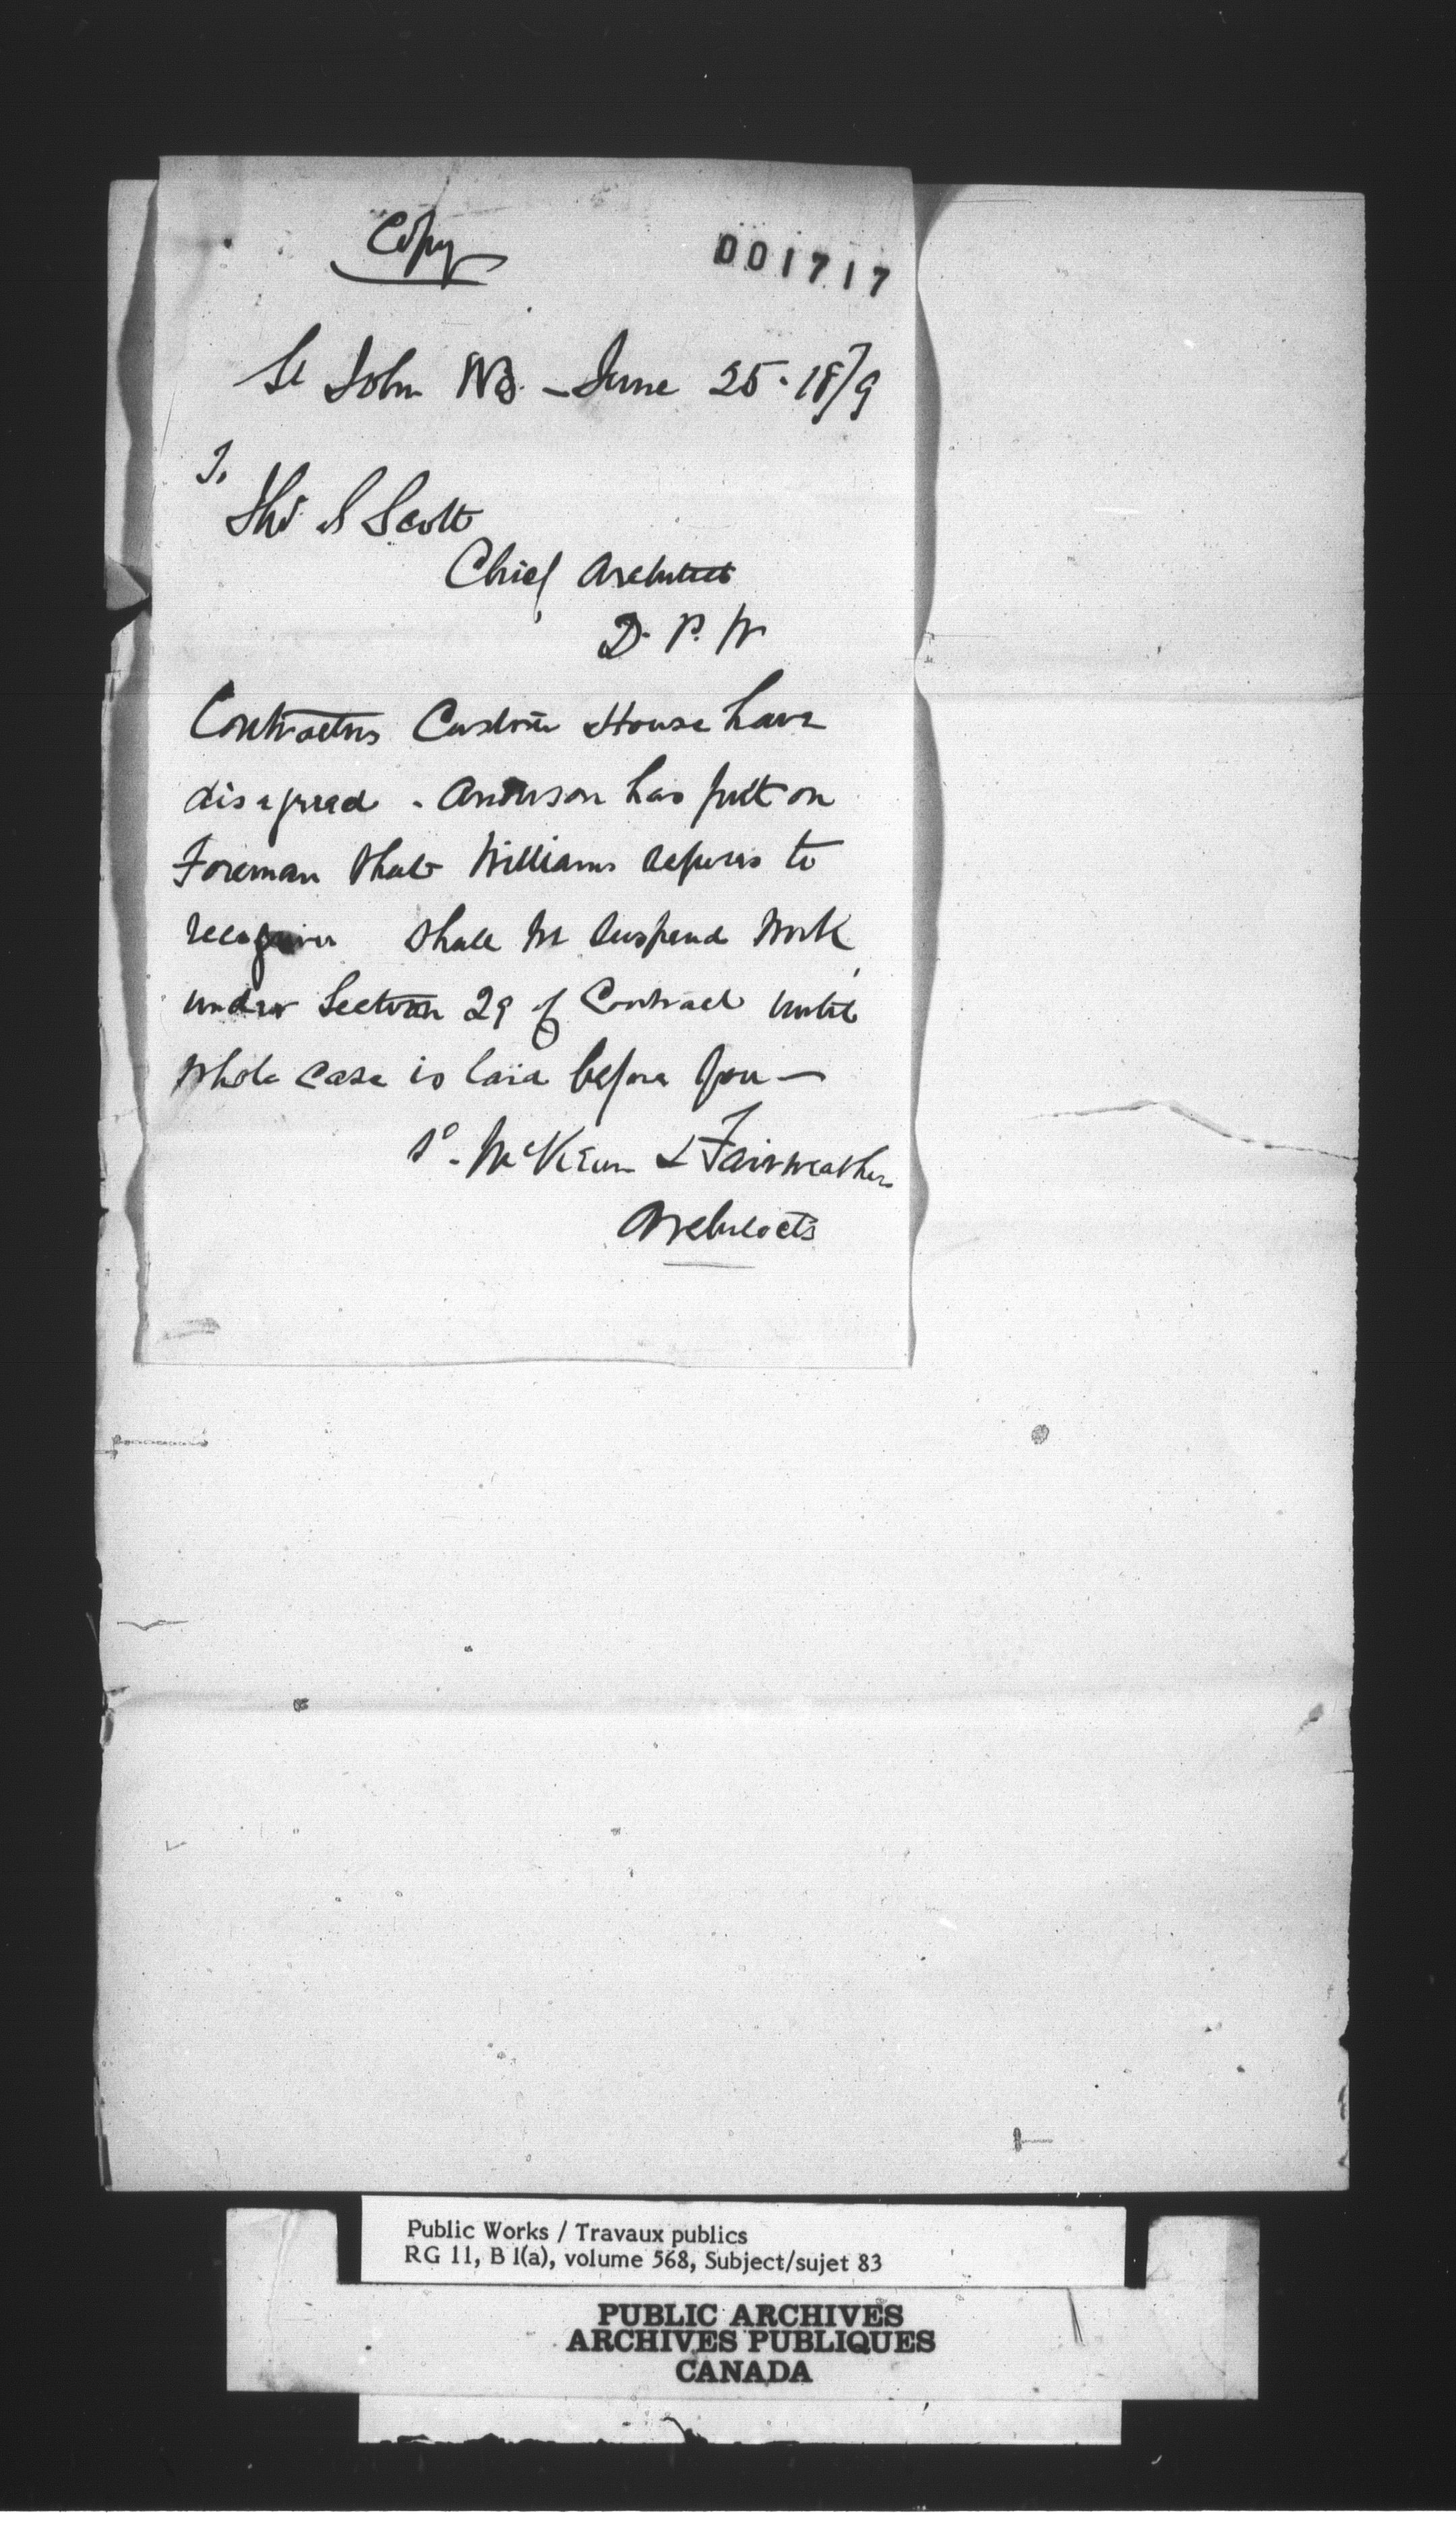 Copy
001717
St John NB. - June 25. 1879
To
Thos S Scott
Chief Architect
D. P. W
Contractors Custom House have
disagreed - Anderson has put on
Foreman that Williams refuses to
recognise Shall we suspend work
under Section 29 of Contract until
whole case is laid before you -
Sd. McKean & Fairweather
Architects
Public Works / Travaux publics
RG 11, B 1(a), volume 568, Subject/sujet 83
PUBLIC ARCHIVES
ARCHIVES PUBLIQUES
CANADA